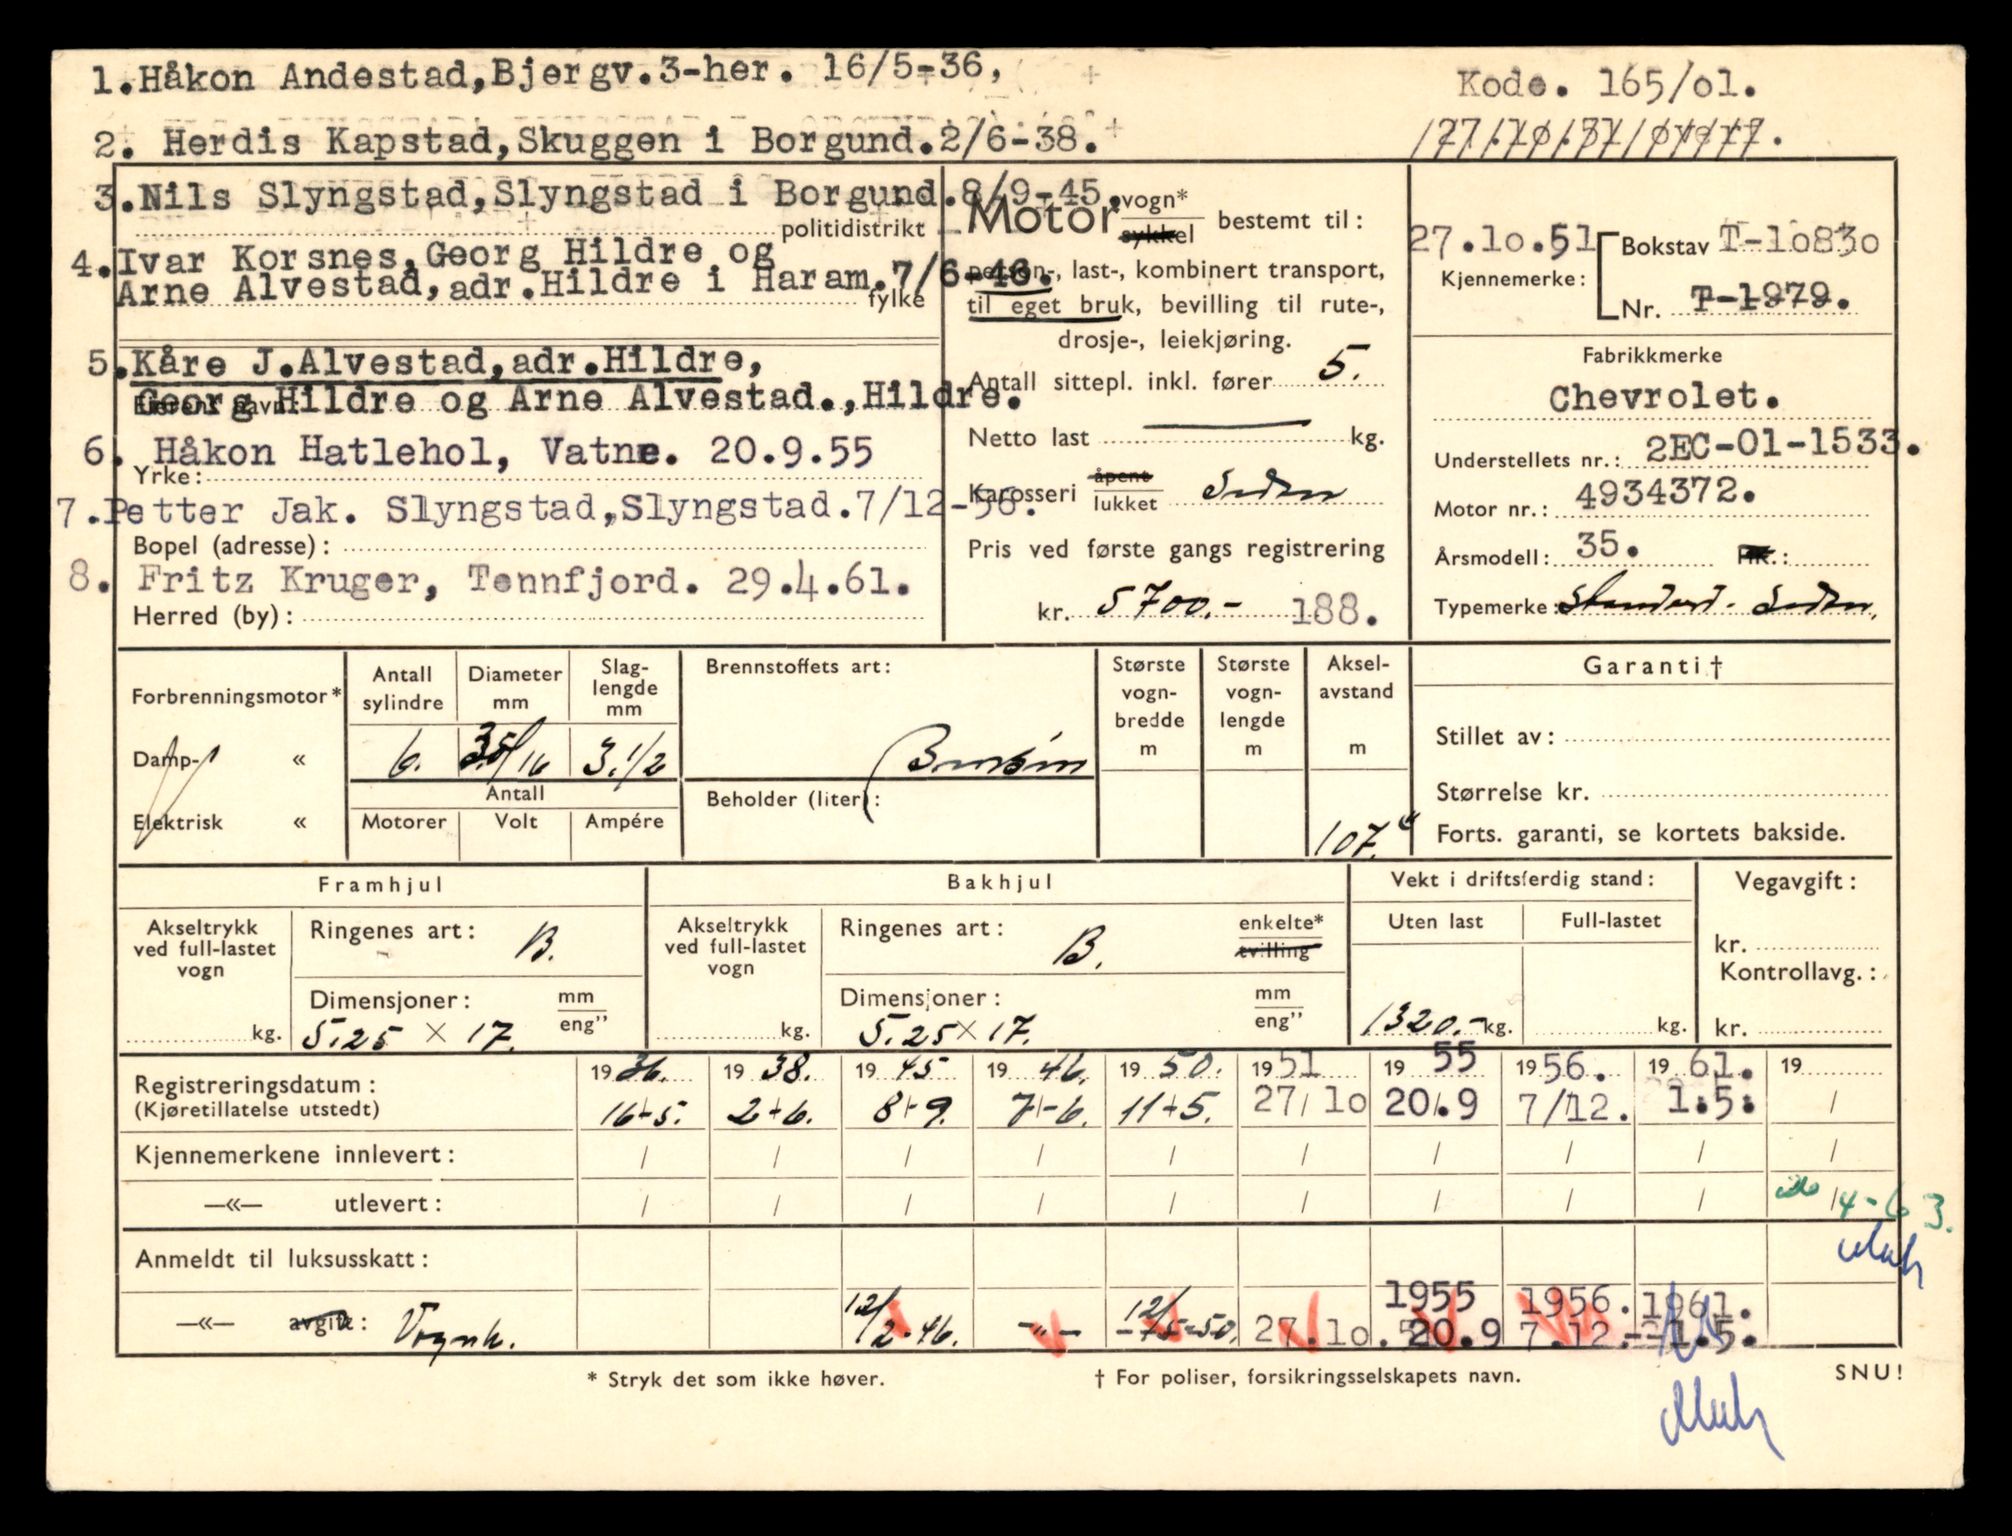 1.Håkon Andestad,Bjergv.3-her. 16/5-36,
Kode. 165/o1.
2. Herdis Kapstad,Skuggen i Borgund.2/6-38.
3.Nils Slyngstad,Slyngstad i Borgund.8/9-45.
politidistrikt
4.Ivar Korsnes,Georg Hildre og
Arne Alvestad,adr.Hildre i Haram.7/6-46.
fylke
5.Kåre J.Alvestad,adr.Hildre,
Georg Hildre og Arne Alvestad.,Hildre.
6. Håkon Hatlehol, Vatne. 20.9.55
Yrke:
7.Petter Jak. Slyngstad,Slyngstad.7/12-56.
Bopel (adresse):
8. Fritz Kruger, Tennfjord. 29.4.61.
Herred (by):
Motor vogn* sykkel bestemt til:
person-, last-, kombinert transport,
til eget bruk, bevilling til rute-,
drosje-, leiekjøring.
Antall sittepl. inkl. fører 5.
Netto last — kg.
Karosseri åpent lukket Sedan
Pris ved første gangs registrering
kr. 5700.- 188.
27.10.51 Bokstav T-10830
Kjennemerke:
Nr. T-1979.
Fabrikkmerke
Chevrolet.
Understellets nr.: 2EC-01-1533.
Motor nr.: 4934372.
Årsmodell: 35. HK.:
Typemerke: Standard. Sedan,
Forbrenningsmotor*
Damp- «
Elektrisk «
Antall sylindre
6.
Diameter mm
/16
Slag-lengde mm
3.1/2
Antall
Motorer Volt Ampére
Brennstoffets art:
Bensin
Beholder (liter):
Største vogn-bredde m
Største vogn-lengde m
Aksel-avstand m
107."
Garanti†
Stillet av:
Størrelse kr.
Forts. garanti, se kortets bakside.
Framhjul
Akseltrykk ved full-lastet vogn
kg.
Ringenes art: B.
Dimensjoner: mm eng''
5.25 × 17.
Bakhjul
Akseltrykk ved full-lastet vogn
kg.
Ringenes art: B. enkelte* tvilling
Dimensjoner: mm eng''
5.25 × 17.
Vekt i driftsferdig stand:
Uten last Full-lastet
1320.- kg. kg.
Vegavgift:
kr.
Kontrollavg.:
kr.
Registreringsdatum: 1936. 1938. 1945 1946. 1950. 1951 1955 1956. 1961. 19
(Kjøretillatelse utstedt) 16/-5. 2/-6. 8/-9. 7/-6. 11/-5. 27/10 20/.9 7/12. 1.5. /
Kjennemerkene innlevert: / / / / / / / / / /
—«— utlevert: / / / / / / / / / 14-63.
Anmeldt til luksusskatt:
1955 1956. 1961.
—«— avgift: Vognk. 12/2-46. -"- 12/5-50. 27.10.51 20.9 7.12.-- 1.5.
* Stryk det som ikke høver.
† For poliser, forsikringsselskapets navn.
SNU!